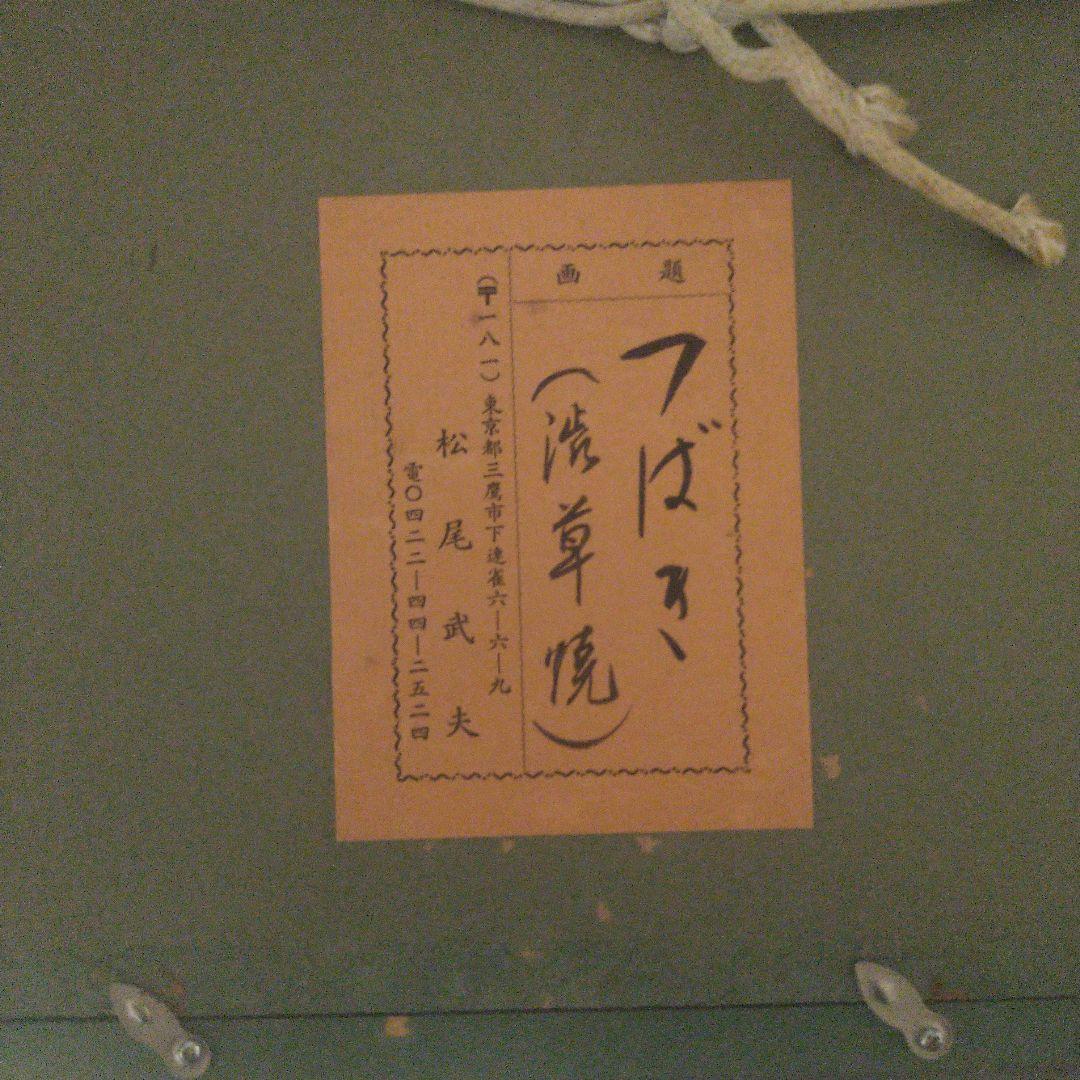 画題
つばき
（渋草焼）
（〒一八一）東京都三鷹市下連雀六―六―九
松尾武夫
電〇四二二―四四―二五二四